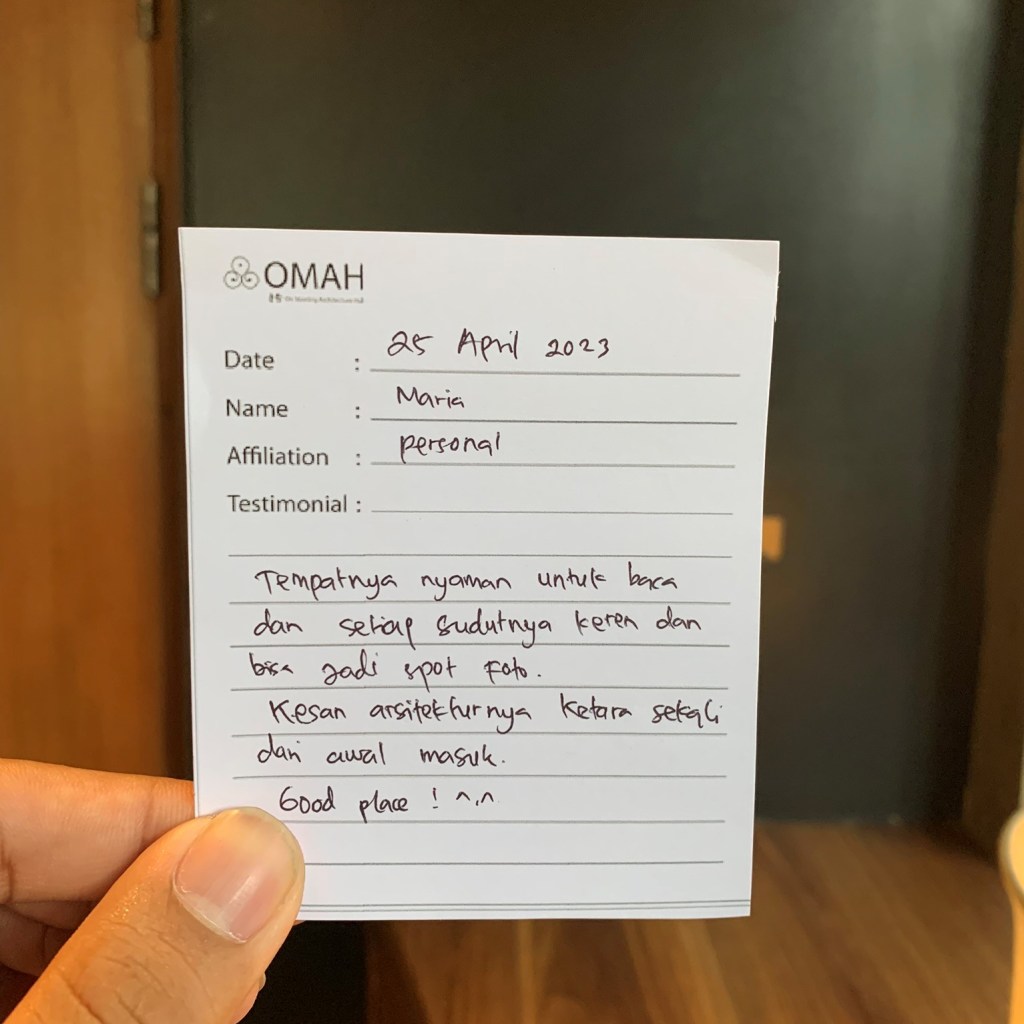 OMAH
Date : 25 April 2023
Name : Maria
Affiliation : personal
Testimonial :
Tempatnya nyaman untuk baca
dan setiap sudutnya keren dan
bisa jadi spot foto.
Kesan arsitekturnya ketara sekali
dari awal masuk.
Good place ! ^.^